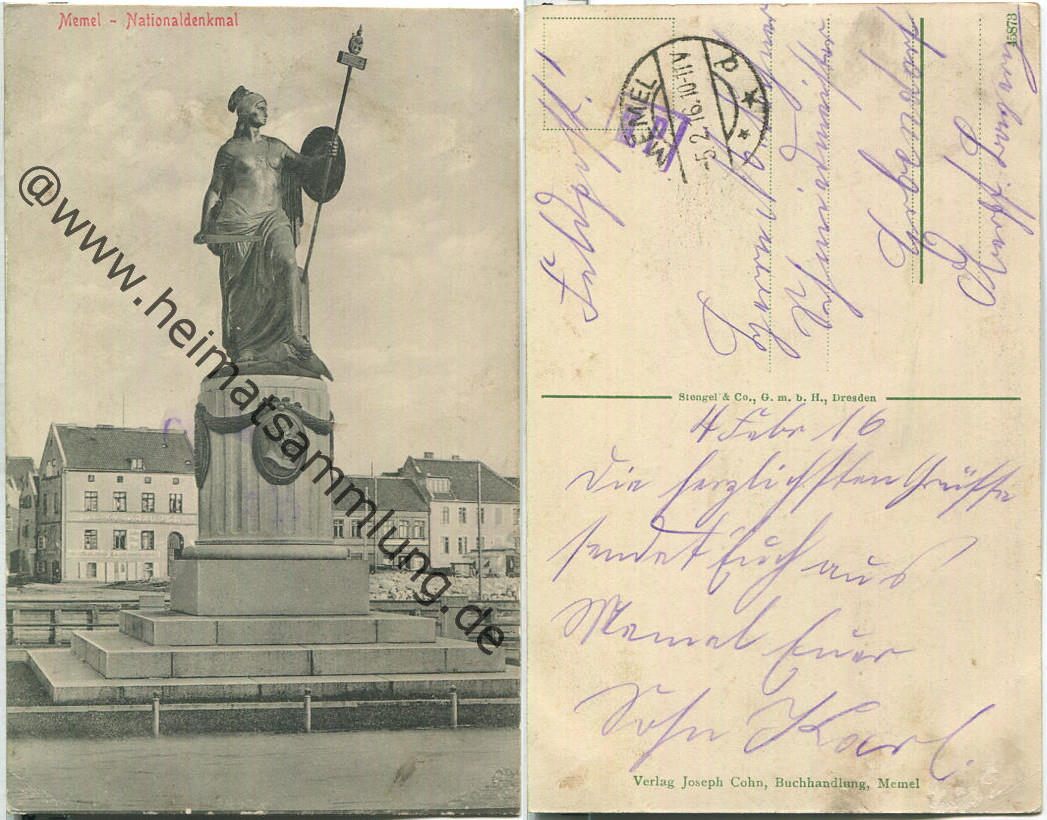 Memel - Nationaldenkmal
@www.heimatsammlung.de
45873
MEMEL
-5.2.16.10-11V
Feldpost!
Herrn
Schmiedmeister
Stengel & Co., G. m. b. H., Dresden
4 Febr 16
Die herzlichsten Grüsse
sendet Euch aus
Memel Euer
Sohn Karl.
Verlag Joseph Cohn, Buchhandlung, Memel